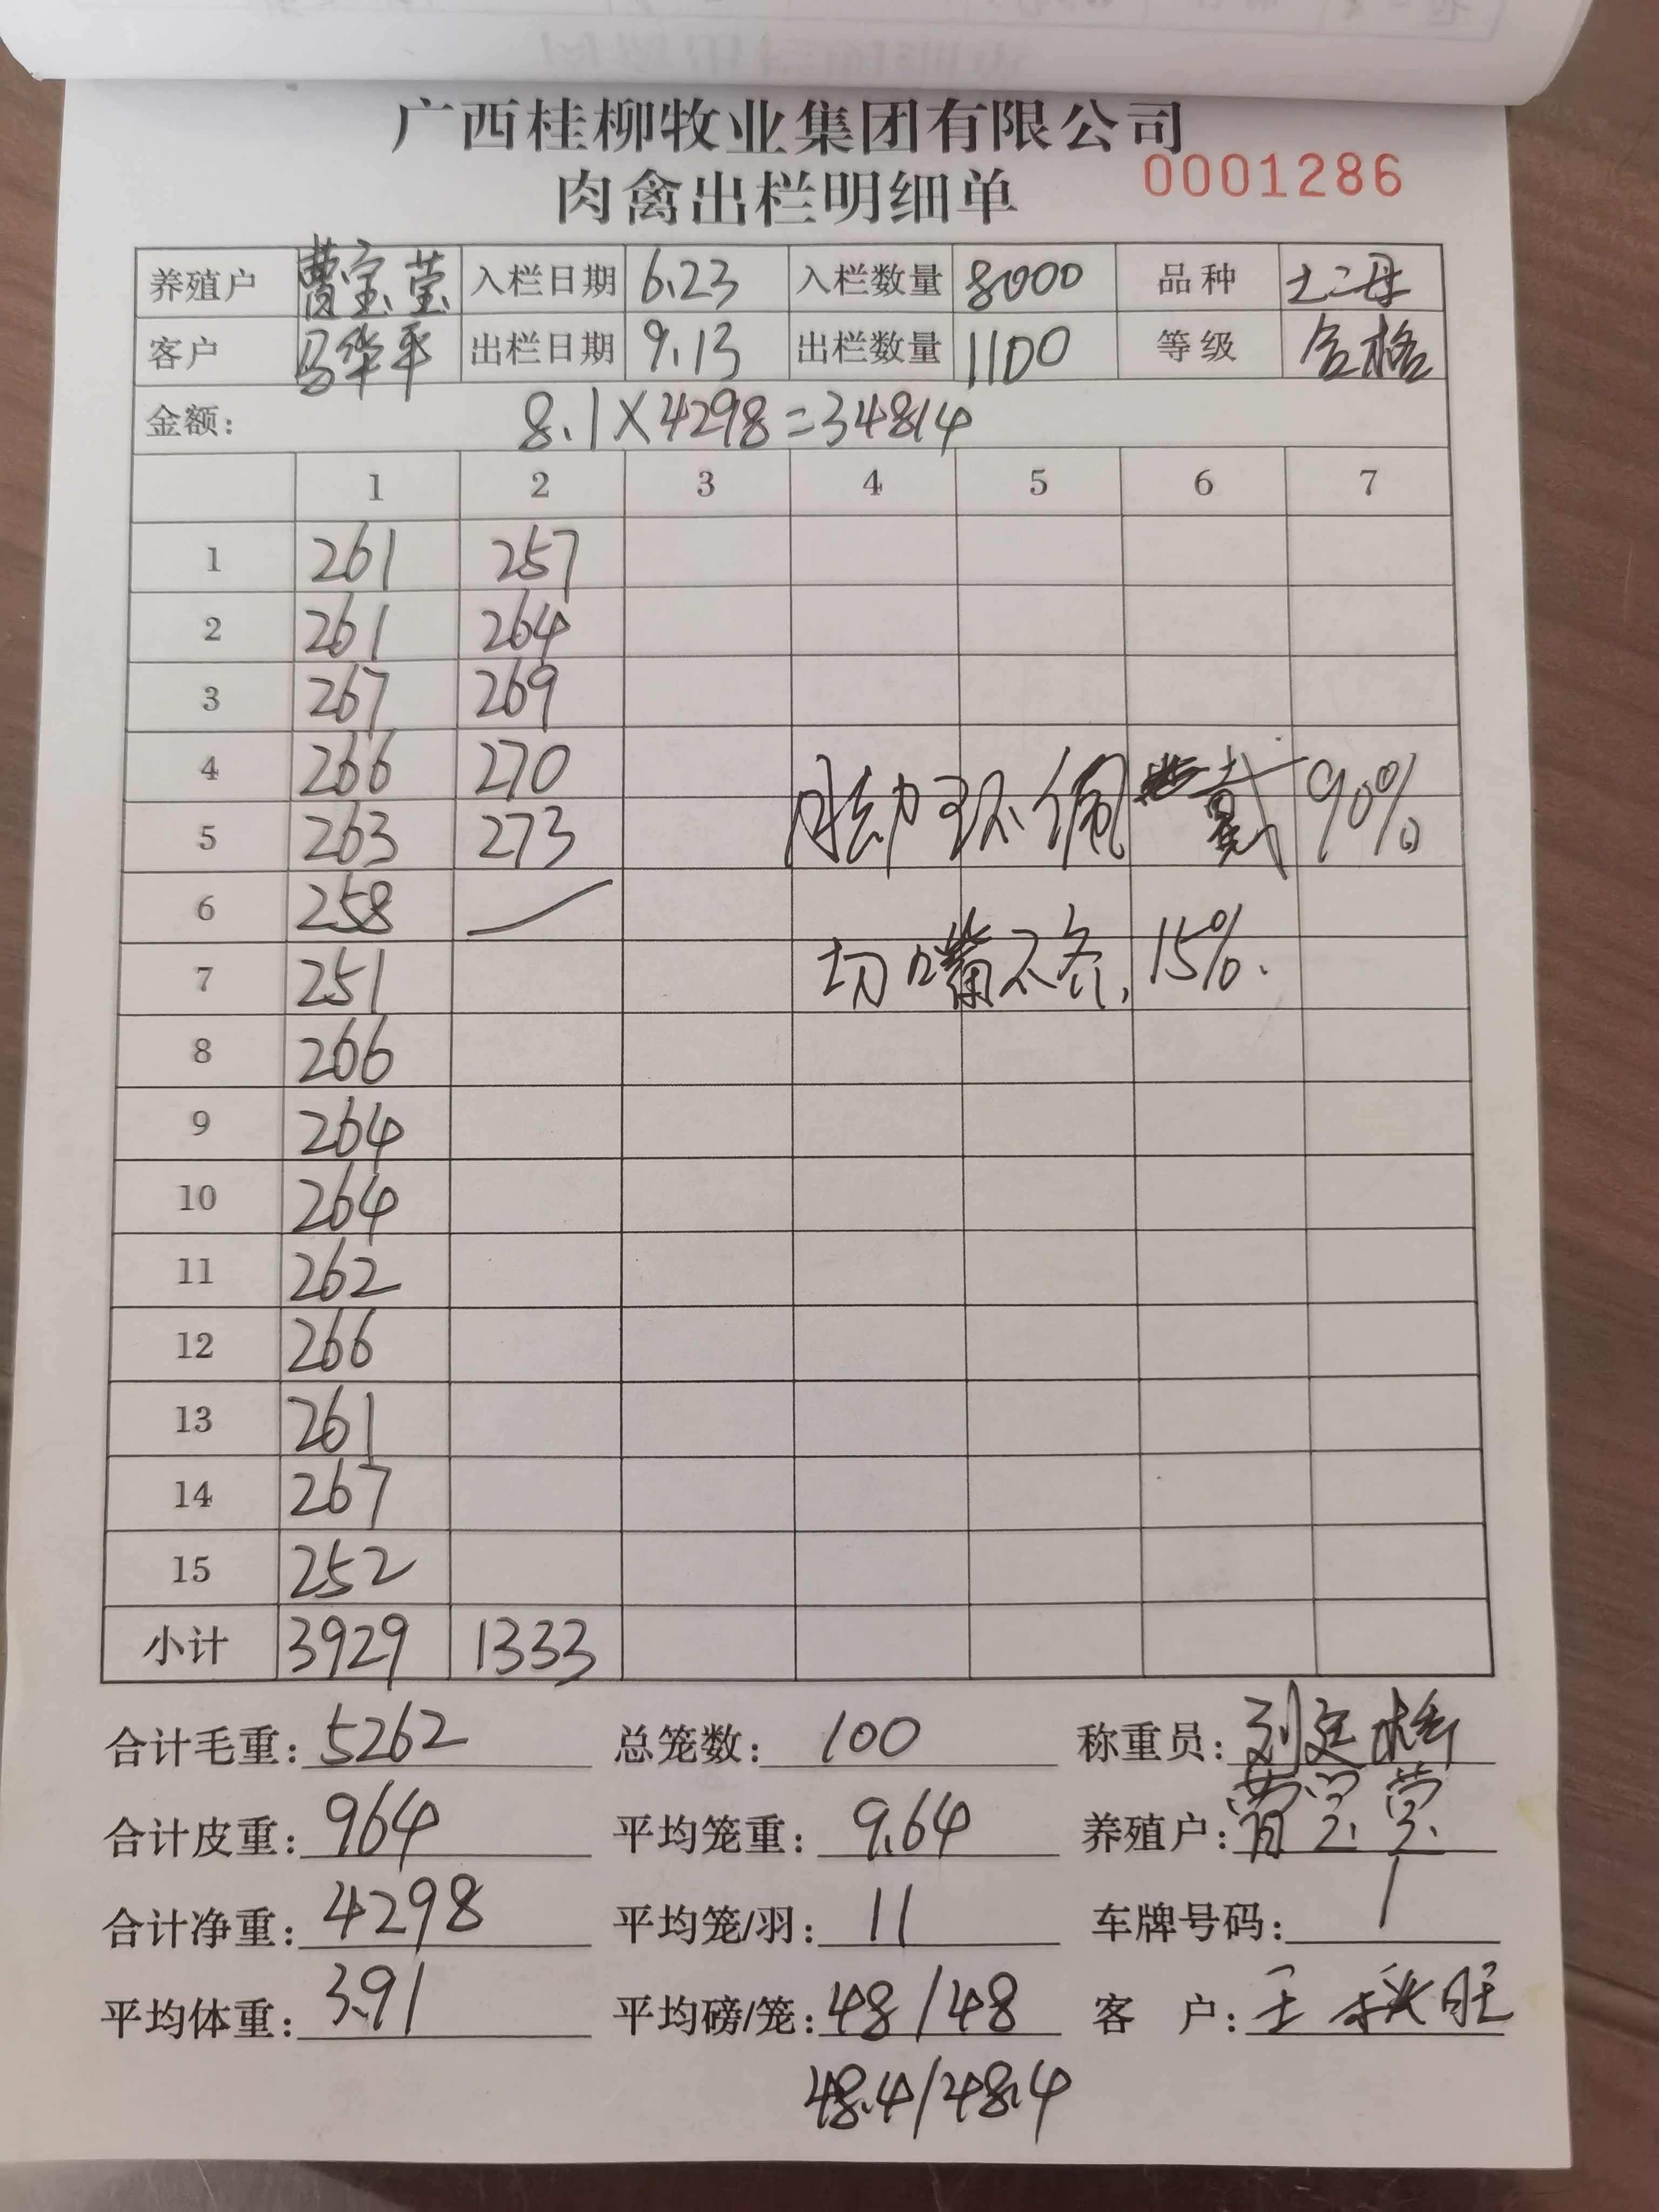 广西桂柳牧业集团有限公司
肉禽出栏明细单 0001286
养殖户 曹宝莹 入栏日期 6.23 入栏数量 8000 品种 土二母
客户 马华平 出栏日期 9.13 出栏数量 1100 等级 合格
金额: 8.1×4298=34814
1 2 3 4 5 6 7
1 261 257
2 261 264
3 267 269
4 266 270
5 263 273
脚环佩戴 90%
6 258 —
7 251
切嘴不齐, 15%.
8 266
9 264
10 264
11 262
12 266
13 261
14 267
15 252
小计 3929 1333
合计毛重: 5262 总笼数: 100 称重员:
合计皮重: 964 平均笼重: 9.64 养殖户: 曹宝莹
合计净重: 4298 平均笼/羽: 11 车牌号码: /
平均体重: 3.91 平均磅/笼: 48/48 客 户: 王秋旺
48.4/48.4